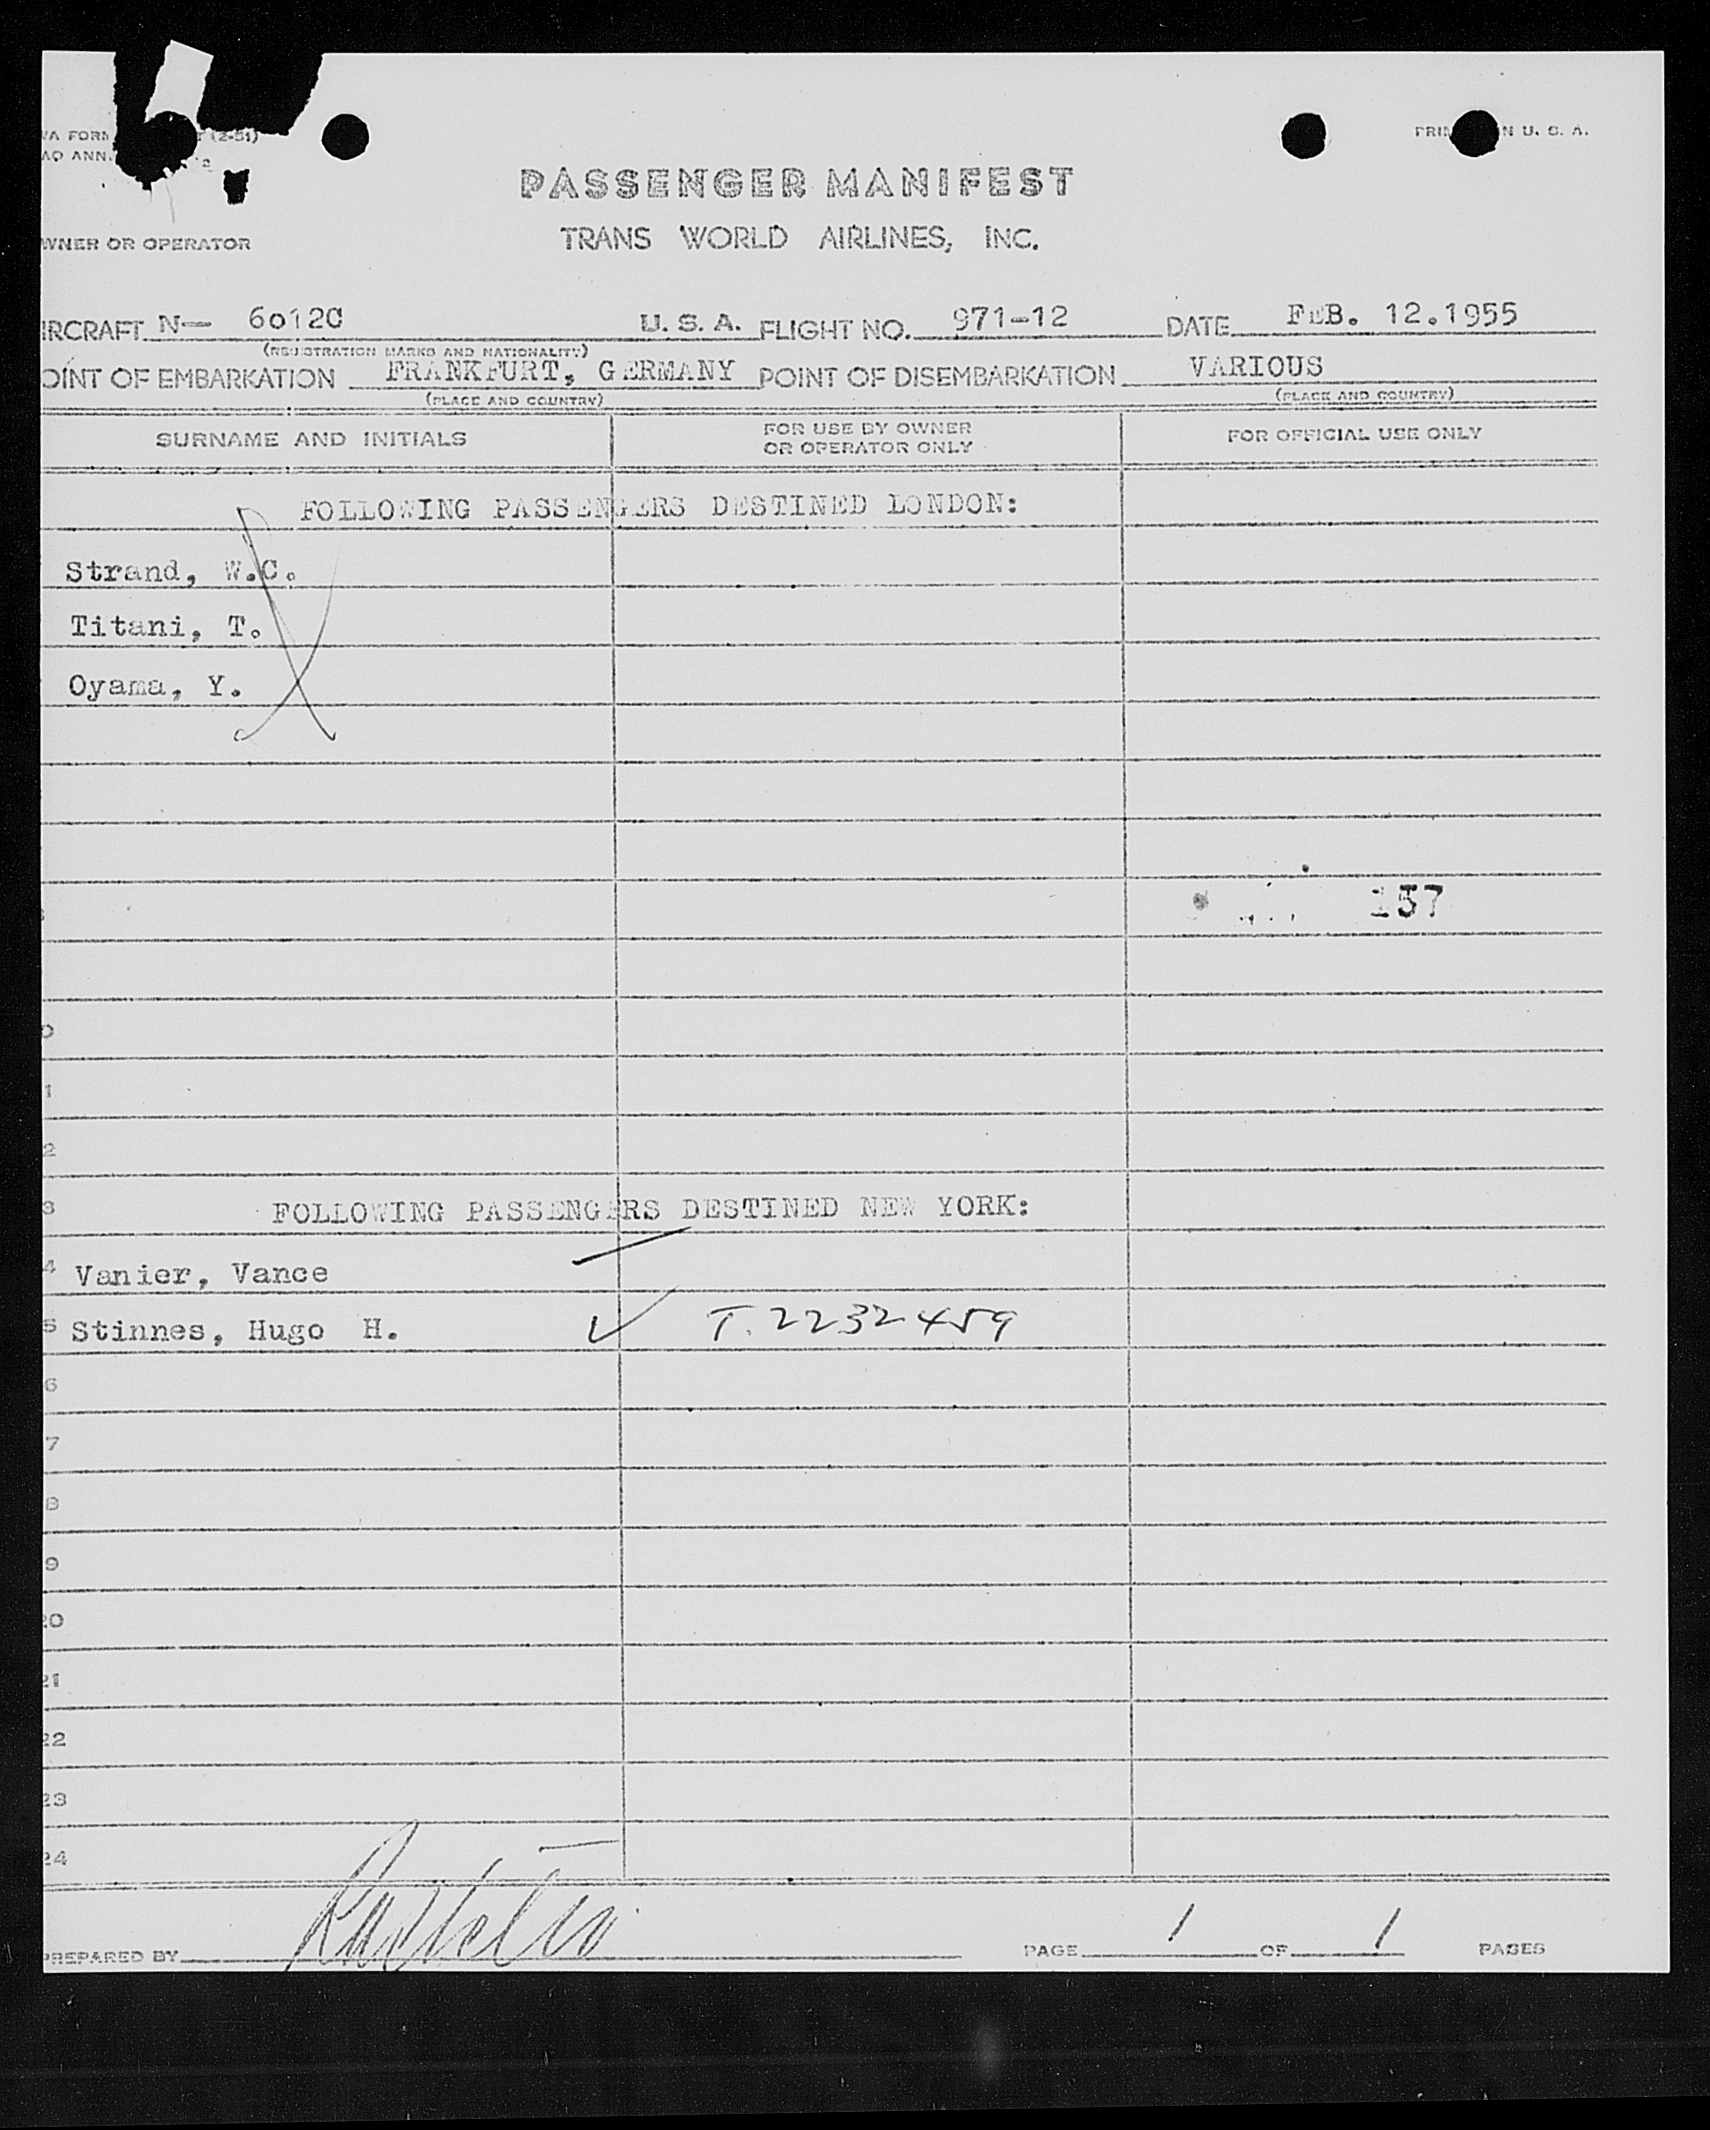 WA FORM (2-51)
AO ANN. 2
PRIN N U. S. A.
PASSENGER MANIFEST
WNER OR OPERATOR
TRANS WORLD AIRLINES, INC.
IRCRAFT N— 6o12C U. S. A. FLIGHT NO. 971-12 DATE FEB. 12.1955
(REGISTRATION MARKS AND NATIONALITY)
OINT OF EMBARKATION FRANKFURT, GERMANY POINT OF DISEMBARKATION VARIOUS
(PLACE AND COUNTRY) (PLACE AND COUNTRY)
SURNAME AND INITIALS FOR USE BY OWNER OR OPERATOR ONLY FOR OFFICIAL USE ONLY
FOLLOWING PASSENGERS DESTINED LONDON:
Strand, W.C.
Titani, T.
Oyama, Y.
157
0
1
2
3 FOLLOWING PASSENGERS DESTINED NEW YORK:
4 Vanier, Vance
5 Stinnes, Hugo H. T. 2232459
6
7
8
9
20
21
22
23
24
PREPARED BY PAGE 1 OF 1 PAGES